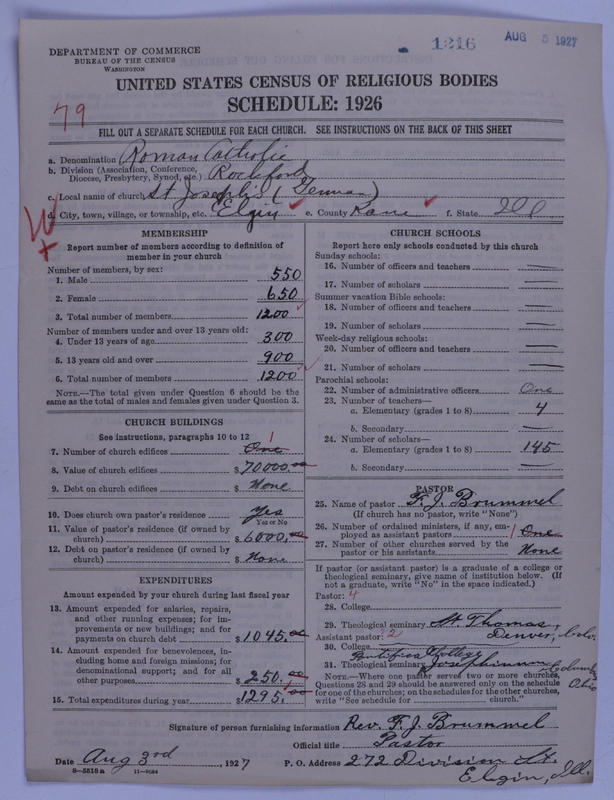 1216 AUG 5 1927
DEPARTMENT OF COMMERCE
BUREAU OF THE CENSUS
WASHINGTON
UNITED STATES CENSUS OF RELIGIOUS BODIES
SCHEDULE: 1926
79
FILL OUT A SEPARATE SCHEDULE FOR EACH CHURCH. SEE INSTRUCTIONS ON THE BACK OF THIS SHEET
a. Denomination Roman Catholic
b. Division (Association, Conference, Diocese, Presbytery, Synod, etc.) Rockford
c. Local name of church St Joseph's (German)
d. City, town, village, or township, etc. Elgin e. County Kane f. State Ill
MEMBERSHIP
Report number of members according to definition of member in your church
Number of members, by sex:
1. Male 550
2. Female 650
3. Total number of members 1200
Number of members under and over 13 years old:
4. Under 13 years of age 300
5. 13 years old and over 900
6. Total number of members 1200
NOTE.—The total given under Question 6 should be the same as the total of males and females given under Question 3.
CHURCH BUILDINGS
See instructions, paragraphs 10 to 12
7. Number of church edifices One 1
8. Value of church edifices $70000.00
9. Debt on church edifices $ None
10. Does church own pastor's residence Yes
Yes or No
11. Value of pastor's residence (if owned by church) $6000.00
12. Debt on pastor's residence (if owned by church) $ None
EXPENDITURES
Amount expended by your church during last fiscal year
13. Amount expended for salaries, repairs, and other running expenses; for improvements or new buildings; and for payments on church debt $1045.00
14. Amount expended for benevolences, including home and foreign missions; for denominational support; and for all other purposes $250.00
15. Total expenditures during year $1295.00
CHURCH SCHOOLS
Report here only schools conducted by this church
Sunday schools:
16. Number of officers and teachers —
17. Number of scholars —
Summer vacation Bible schools:
18. Number of officers and teachers —
19. Number of scholars —
Week-day religious schools:
20. Number of officers and teachers —
21. Number of scholars —
Parochial schools:
22. Number of administrative officers One
23. Number of teachers—
a. Elementary (grades 1 to 8) 4
b. Secondary —
24. Number of scholars—
a. Elementary (grades 1 to 8) 145
b. Secondary —
PASTOR
25. Name of pastor F. J. Brummel
(If church has no pastor, write "None")
26. Number of ordained ministers, if any, employed as assistant pastors 1 One
27. Number of other churches served by the pastor or his assistants None
If pastor (or assistant pastor) is a graduate of a college or theological seminary, give name of institution below. (If not a graduate, write "No" in the space indicated.)
Pastor: 4
28. College
29. Theological seminary St. Thomas, Denver, Colo.
Assistant pastor: 2
30. College Pontifical College
31. Theological seminary Josephinum Columbus Ohio
NOTE.—Where one pastor serves two or more churches, Questions 28 and 29 should be answered only on the schedule for one of the churches; on the schedules for the other churches, write "See schedule for ........ church."
Signature of person furnishing information Rev. F. J. Brummel
Official title Pastor
Date Aug 3rd, 1927 P. O. Address 272 Division St.
8—5518 a 11—9084 Elgin, Ill.